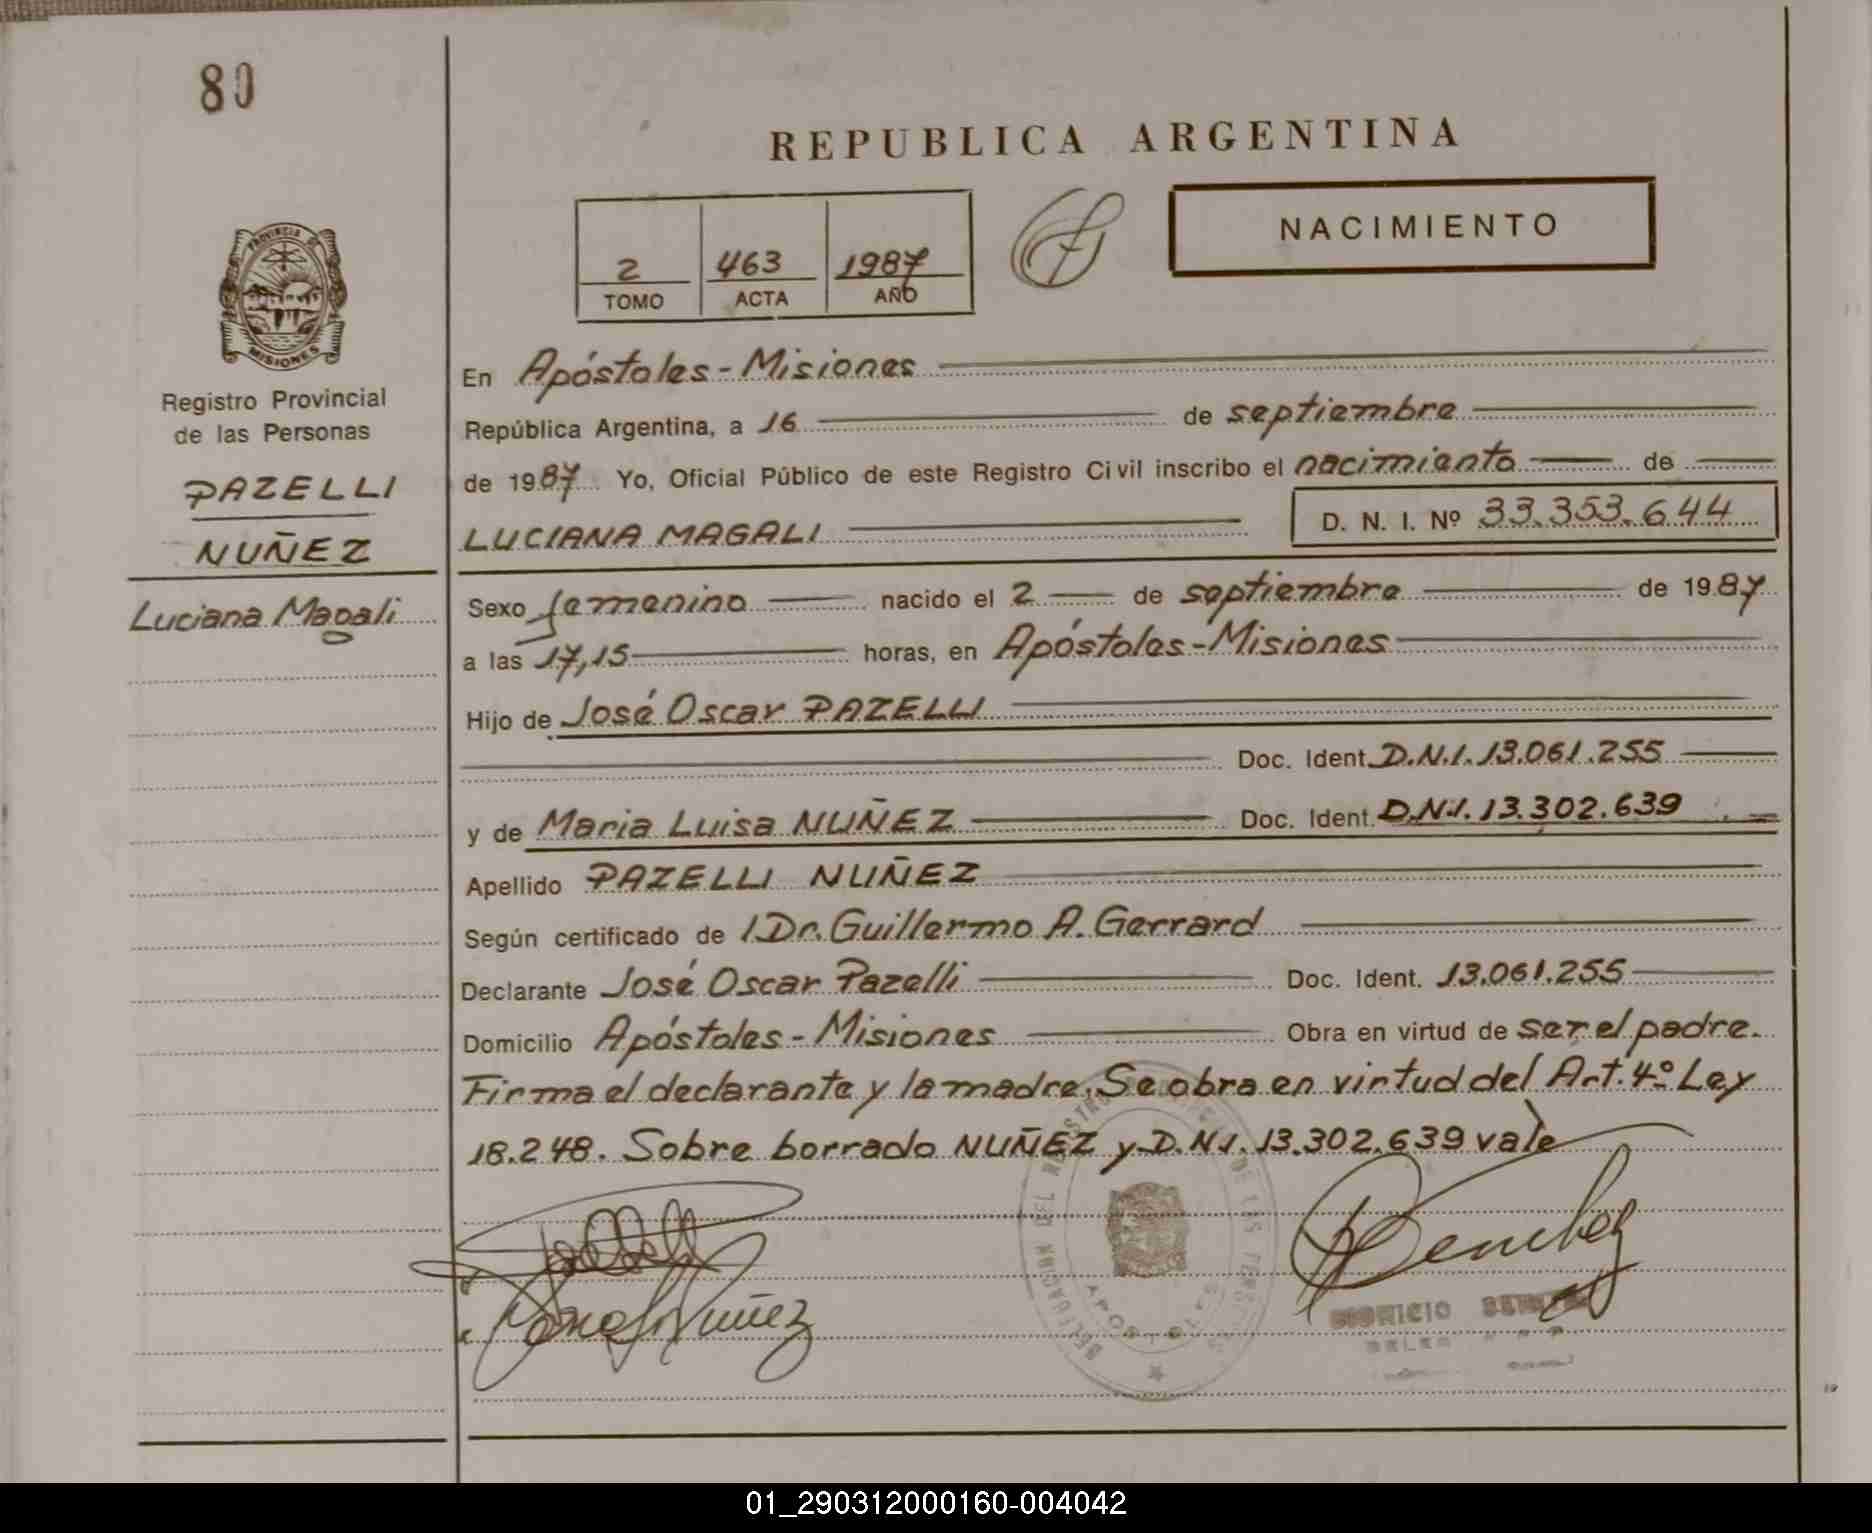 80
REPUBLICA ARGENTINA
NACIMIENTO
2 463 1987
TOMO ACTA AÑO
PROVINCIA DE
MISIONES
Registro Provincial
de las Personas
PAZELLI
NUÑEZ
Luciana Magali
En Apóstoles - Misiones
República Argentina, a 16 de septiembre
de 1987 Yo, Oficial Público de este Registro Civil inscribo el nacimiento de
LUCIANA MAGALI D. N. I. Nº 33.353.644
Sexo femenino nacido el 2 de septiembre de 1987
a las 17,15 horas, en Apóstoles - Misiones
Hijo de José Oscar PAZELLI
Doc. Ident. D.N.I. 13.061.255
y de Maria Luisa NUÑEZ Doc. Ident. D.N.I. 13.302.639
Apellido PAZELLI NUÑEZ
Según certificado de l Dr. Guillermo A. Gerrard
Declarante José Oscar Pazelli Doc. Ident. 13.061.255
Domicilio Apóstoles - Misiones Obra en virtud de ser el padre.
Firma el declarante y la madre. Se obra en virtud del Art. 4º Ley
18.248. Sobre borrado NUÑEZ y D.N.I. 13.302.639 vale
Nuñez
DIONICIO
01_290312000160-004042